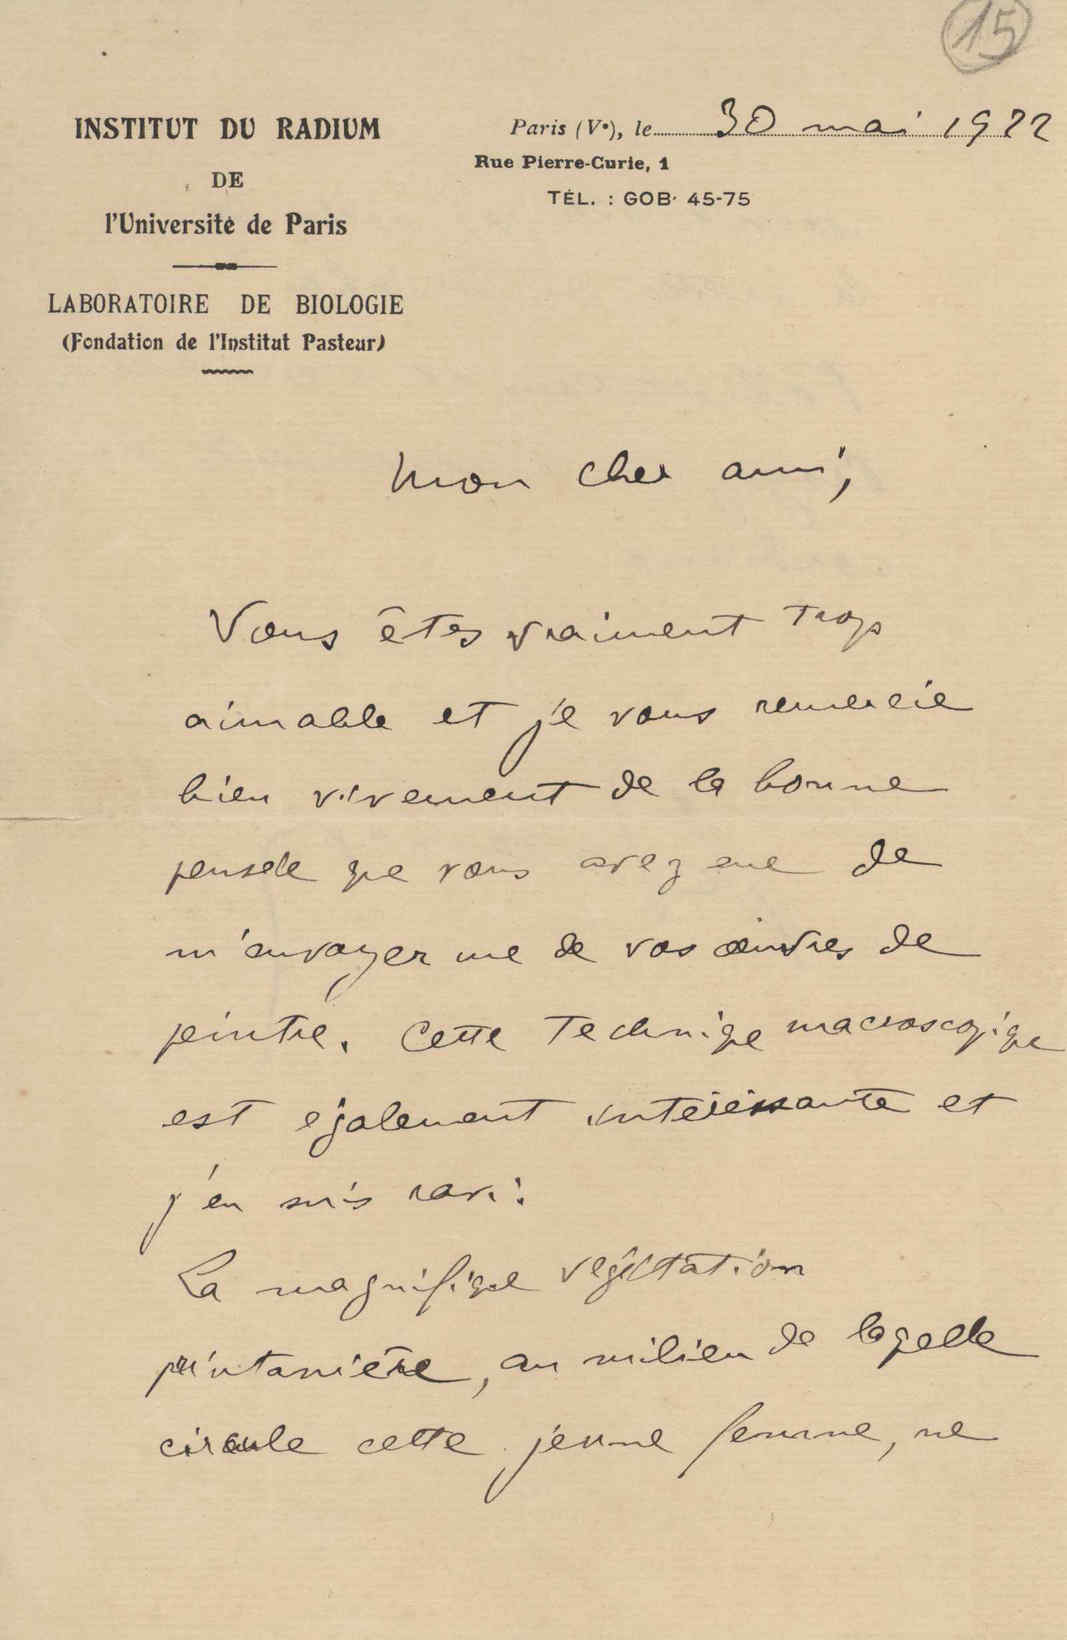 15
INSTITUT DU RADIUM
DE
l'Université de Paris
LABORATOIRE DE BIOLOGIE
(Fondation de l'Institut Pasteur)
Paris (Ve), le 30 mai 1922
Rue Pierre-Curie, 1
TÉL. : GOB. 45-75
Mon cher ami,
Vous êtes vraiment trop
aimable et je vous remercie
bien vivement de la bonne
pensée que vous avez eue de
m'envoyer une de vos œuvres de
peintre. Cette technique macroscopique
est également intéressante et
j'en suis ravi.
La magnifique végétation
printanière, au milieu de laquelle
circule cette jeune femme, ne